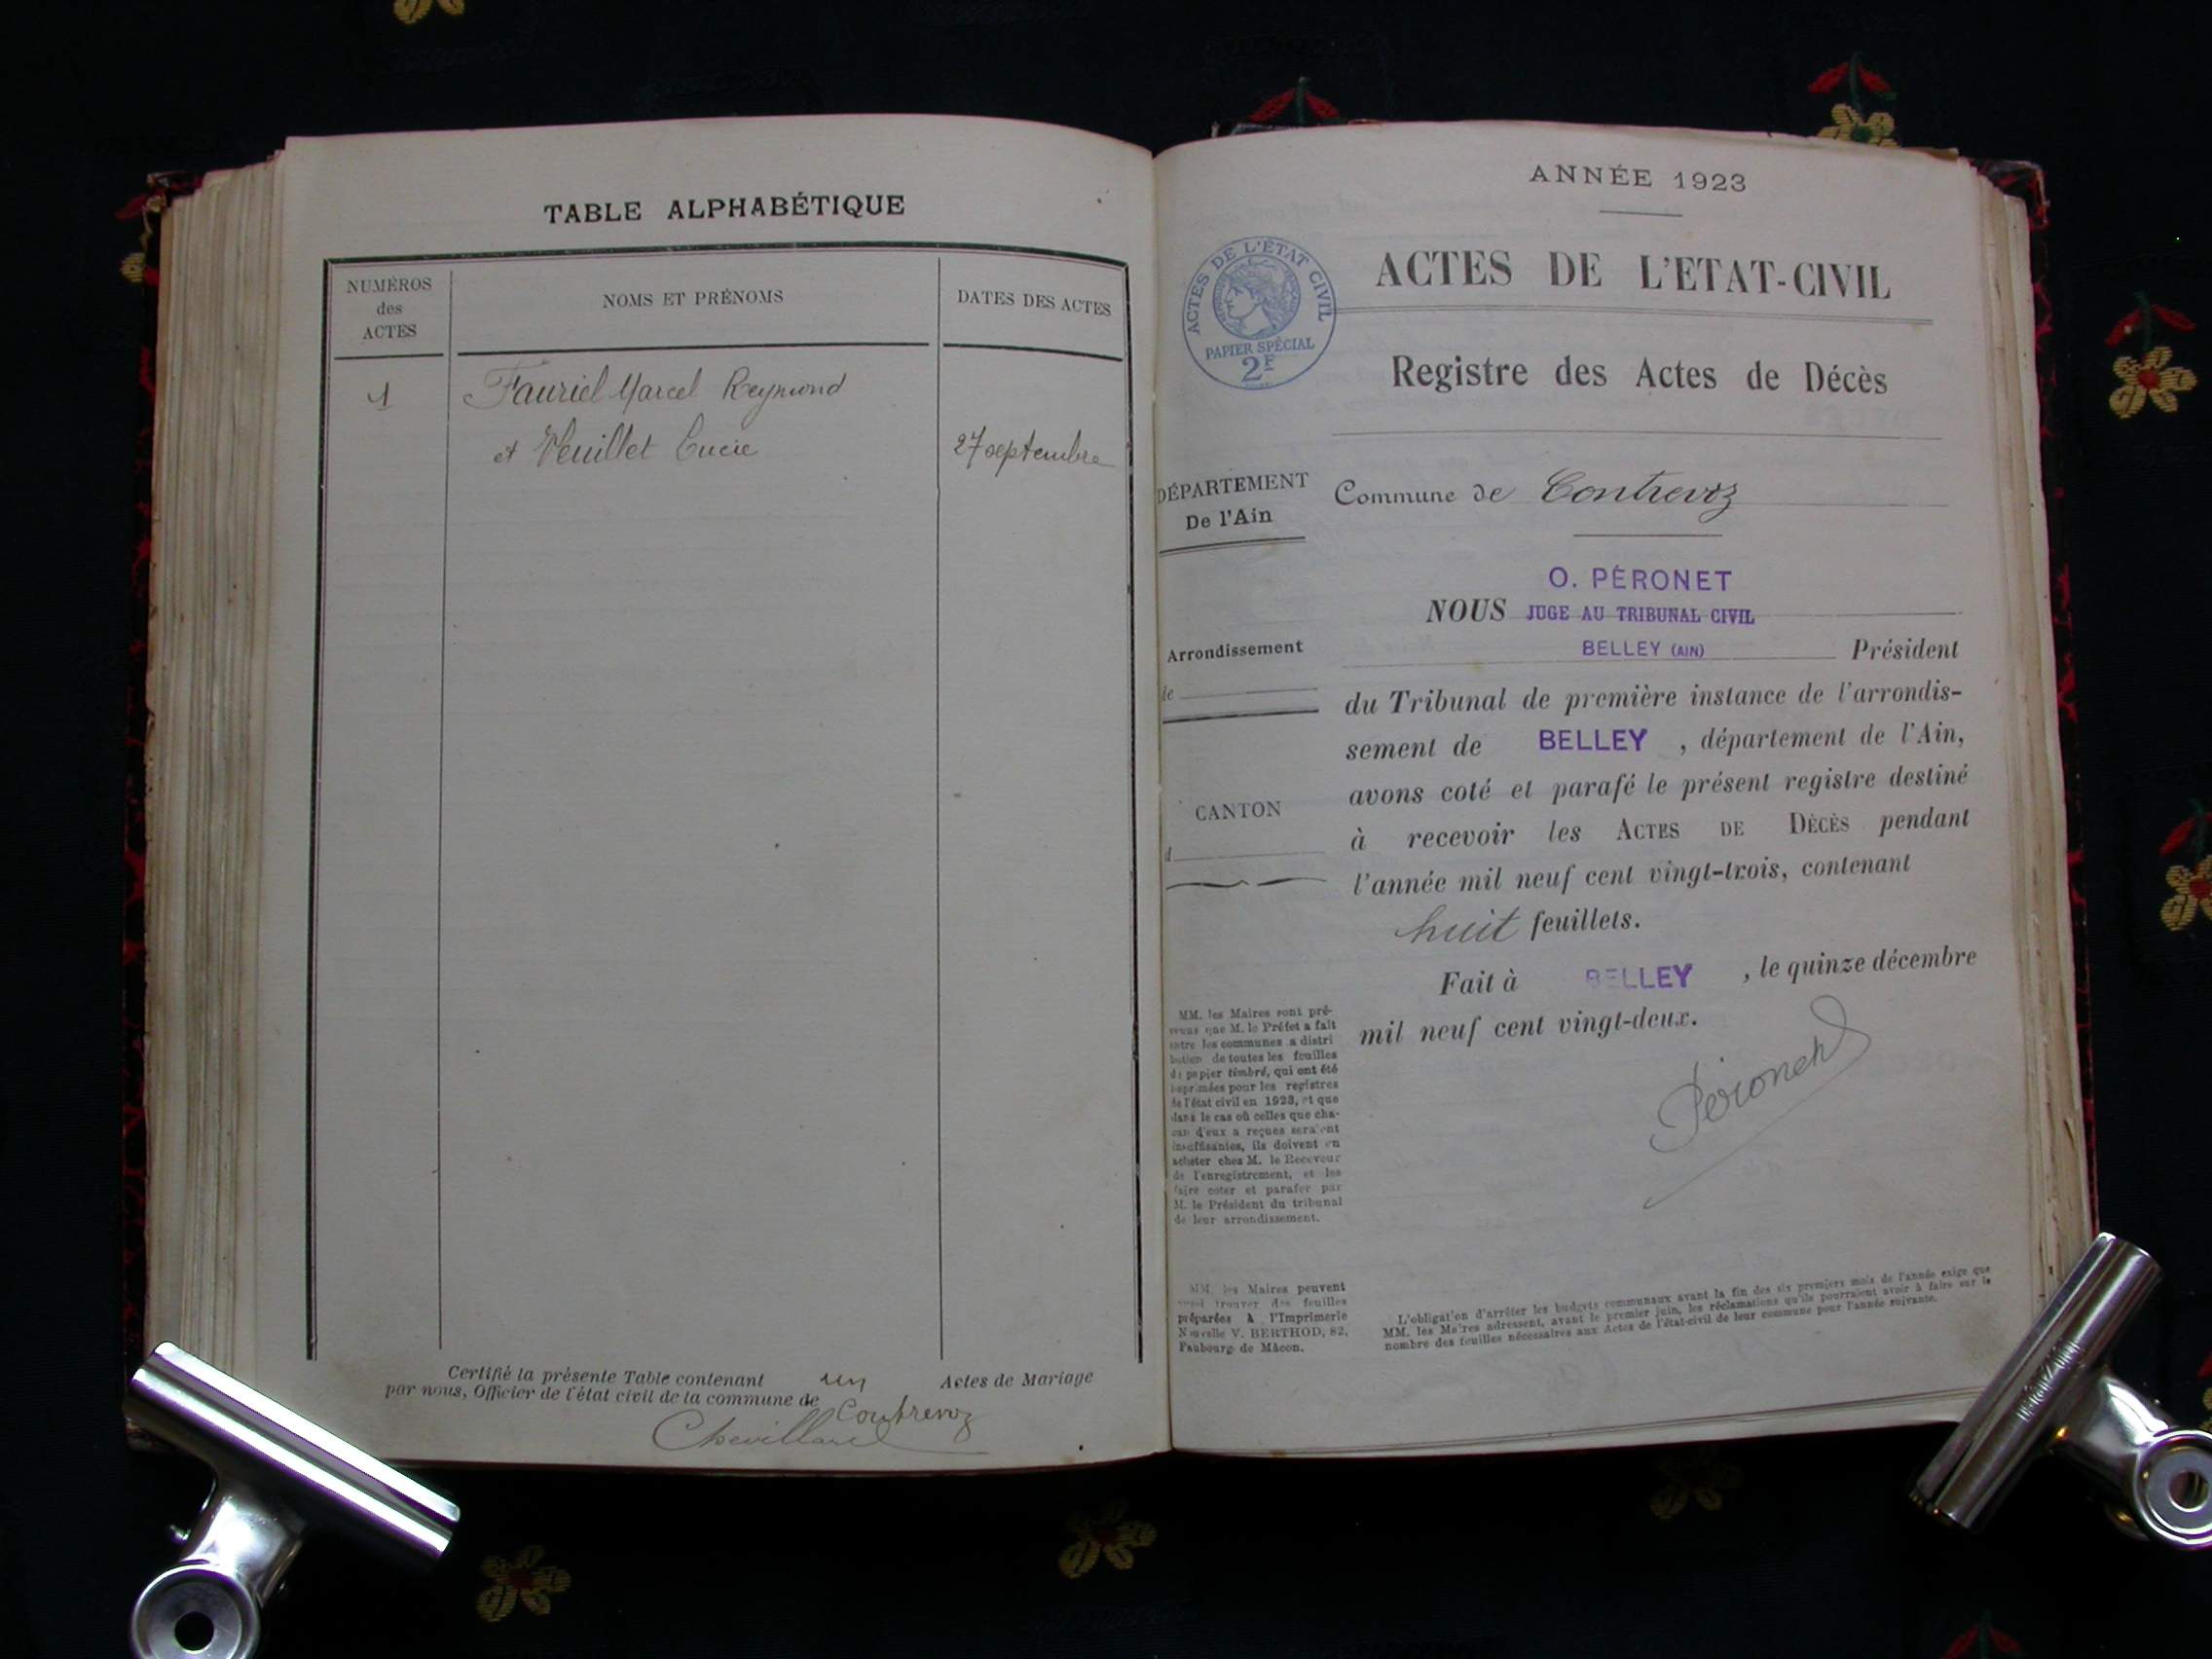 TABLE ALPHABÉTIQUE
NUMÉROS
des
ACTES
NOMS ET PRÉNOMS
DATES DES ACTES
1
Fauriel Marcel Reymond
et Veuillet Lucie
27 septembre
Certifié la présente Table contenant un Actes de Mariage
par nous, Officier de l'état civil de la commune de Contrevoz
Chevillard
ANNÉE 1923
ACTES DE L'ÉTAT CIVIL
PAPIER SPÉCIAL
2F
ACTES DE L'ETAT-CIVIL
Registre des Actes de Décès
DÉPARTEMENT
De l'Ain
Commune de Contrevoz
Arrondissement
de
CANTON
d
O. PÉRONET
NOUS JUGE AU TRIBUNAL CIVIL
BELLEY (AIN) Président
du Tribunal de première instance de l'arrondis-
sement de BELLEY , département de l'Ain,
avons coté et parafé le présent registre destiné
à recevoir les ACTES DE DÉCÈS pendant
l'année mil neuf cent vingt-trois, contenant
huit feuillets.
Fait à BELLEY , le quinze décembre
mil neuf cent vingt-deux.
Péronet
MM. les Maires sont pré-
venus que M. le Préfet a fait
entre les communes a distri
bution de toutes les feuilles
de papier timbré, qui ont été
imprimées pour les registres
de l'état civil en 1923, et que
dans le cas où celles que cha-
cun d'eux a reçues seraient
insuffisantes, ils doivent en
acheter chez M. le Receveur
de l'enregistrement, et les
faire coter et parafer par
M. le Président du tribunal
de leur arrondissement.
MM. les Maires peuvent
aussi trouver des feuilles
préparées à l'Imprimerie
Nouvelle V. BERTHOD, 82,
Faubourg de Mâcon.
L'obligation d'arrêter les budgets communaux avant la fin des six premiers mois de l'année exige que
MM. les Maires adressent, avant le premier juin, les réclamations qu'ils pourraient avoir à faire sur le
nombre des feuilles nécessaires aux Actes de l'état-civil de leur commune pour l'année suivante.